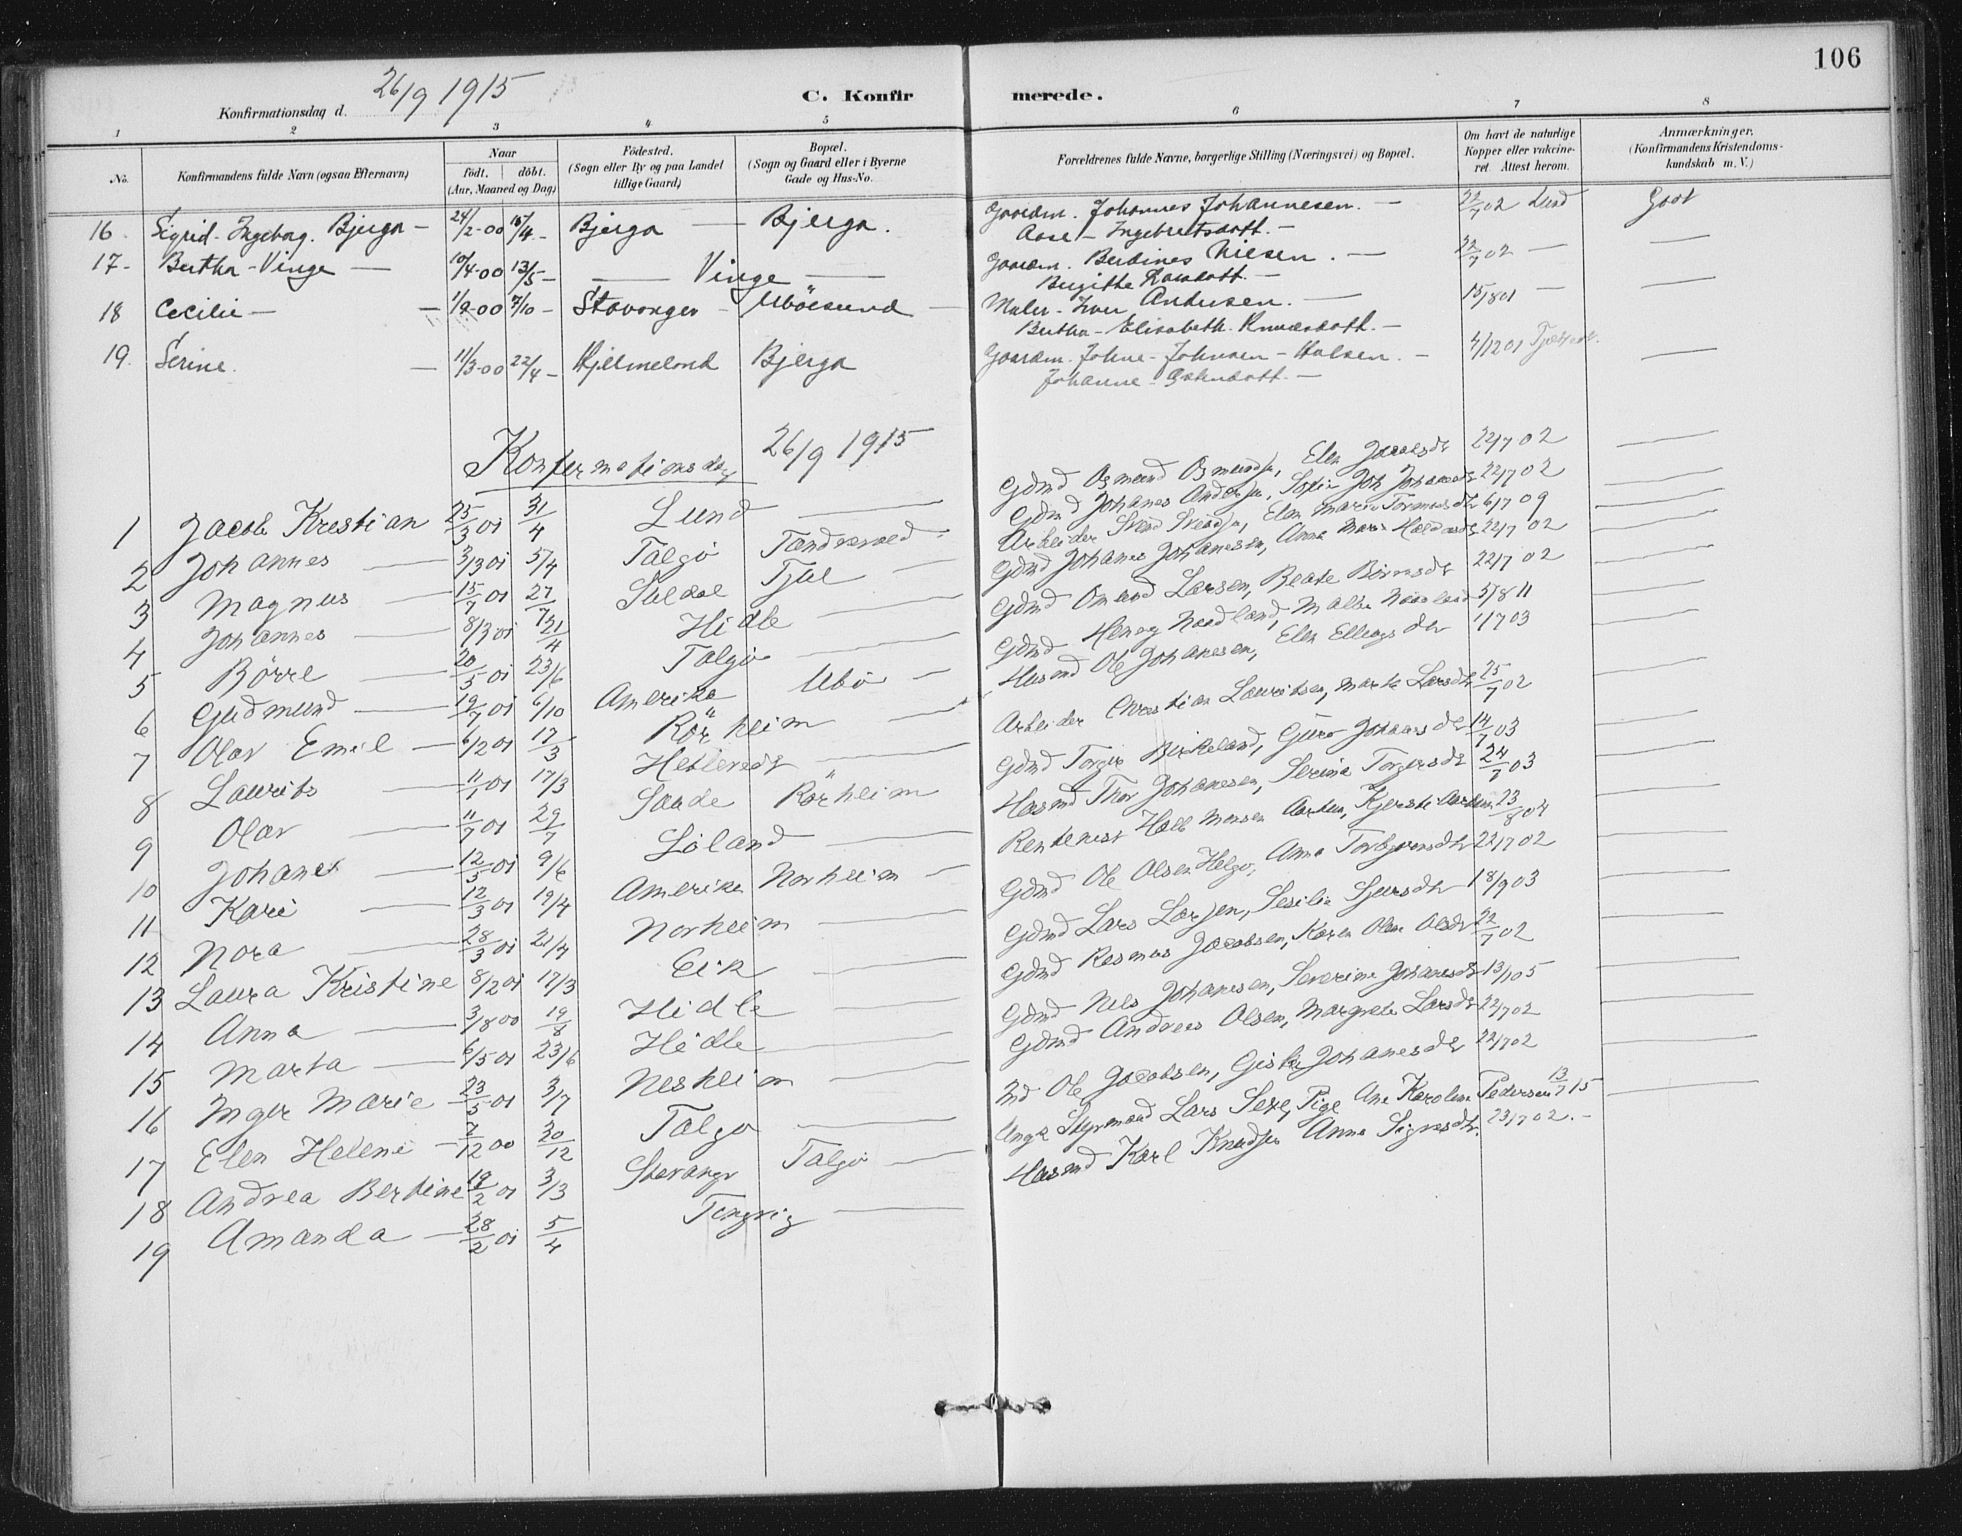 106
Konfirmationsdag d. 26/9 1915
C. Konfirmerede.
1 2 3 4 5 6 7 8
No.
Konfirmandens fulde Navn (ogsaa Efternavn)
Naar
födt. döbt.
(Aar, Maaned og Dag)
Födested.
(Sogn eller By og paa Landet
tillige Gaard)
Bopæl.
(Sogn og Gaard eller i Byerne
Gade og Hus-No.
Forældrenes fulde Navne, borgerlige Stilling (Næringsvei) og Bopæl.
Om havt de naturlige
Kopper eller vakcine-
ret. Attest herom.
Anmærkninger.
(Konfirmandens Kristendoms-
kundskab m. V.)
16. Sigrid Ingeborg Bjerga — 24/2-00 16/4 — Bjerga — Bjerga. Gaardm. Johannes Johannesen. — 22/7 02 Lund Godt
Aase Ingebretsdatt. —
17. Bertha Vinge — 10/4-00 13/5 — Vinge — Gaardm. Berdines Nilsen. — 22/7 02 —
Birgithe Larsdatt. —
18 Cecilie — 1/9-00 7/10 — Stavanger — Ubösund — Maler Iver Andersen. — 15/8 01 —
Bertha Elisabeth Knudsdatt. —
19. Serine. — 11/3-00 22/4 — Hjelmeland Bjerga Gaardm. Johne Johnsen Halsen. — 4/12 01 —
Johanne Johnsdatt. —
Konfermationsdag 26/9 1915
1 Jacob Krestian 25/3 01 31/4 Lund — Gdmd Osmund Osmundsen, Elen Jacobsdt 22/7 02 —
2 Johannes — 3/3 01 5/4 Talgö Tandrevold — Gdmd Johanes Andersen, Sofia Johanesdt 22/7 02 —
3 Magnus — 15/7 01 27/7 Suldal Tjul — Arbeider Svend Svendsen, Elen Maria Tormodsdt 6/7 09 —
4 Johannes — 8/3 01 21/4 Hidle — Gdmd Johanes Johanesen, Anna Maria 22/7 02 —
5 Börre — 20/5 01 23/6 Talgö — Gdmd Omund Larsen, Beate Börresdt 22/7 02 —
6 Gudmund — 19/7 01 6/10 Amerika Ubö — Gdmd Henrg Nordland, Malla Nordland 5/8 11 —
7 Olav Emil — 6/2 01 17/3 Rörheim — Husmd Ole Johanesen, Elen Ellingsdtr 1/7 03 —
8 Laurits — 17/3 Hetlevedt — Arbeider Christian Lauritsen, Marta Larsdt 25/7 02 —
9 Olav — 11/7 01 29/7 Sande Rörheim Gdmd Torger Birkeland, Guro Johanesdt 14/7 03 —
10 Johanes — 12/5 01 9/6 Löland — Husmd Thor Johanesen, Serina Torgersdt 24/7 03 —
11 Kari — 12/3 01 19/4 Amerika Norheim — Rentenist 23/8 04 —
12 Nora — 28/3 01 21/4 Norheim — Gdmd Ole Olsen Helgö, Anna Torbjornsdt 22/7 02 —
13 Laura Kristine 8/2 01 17/3 Eik — Gdmd Lars Larsen, Sesilia Sjursdt 18/9 03 —
14 Anna — 3/8 00 19/8 Hidle — Gdmd Rasmus Jacobsen, Karen Olsdt 22/7 02 —
15 Marta — 6/5 01 23/6 Hidle — Gdmd Nils Johanesen, Severine Johanesdt 13/1 05 —
16 Inger Marie — 23/5 01 3/7 Nesheim — Gdmd Andreas Olsen, Margreta Larsdt 22/7 02 —
17 Elen Helene — 7/12 00 30/12 Talgö — Md Ole Jacobsen, Giska Johanesdt 22/7 02 —
18 Andrea Bertine 18/2 01 3/3 Stavangr Talgö — Styrmand Lars Sexe, Pige Ane Karoline Pedersen 13/7 15 —
19 Amanda — 28/2 01 5/4 Tingvig — Husmd Karl Knudsen Anna Sigvesdt. 23/7 02. —